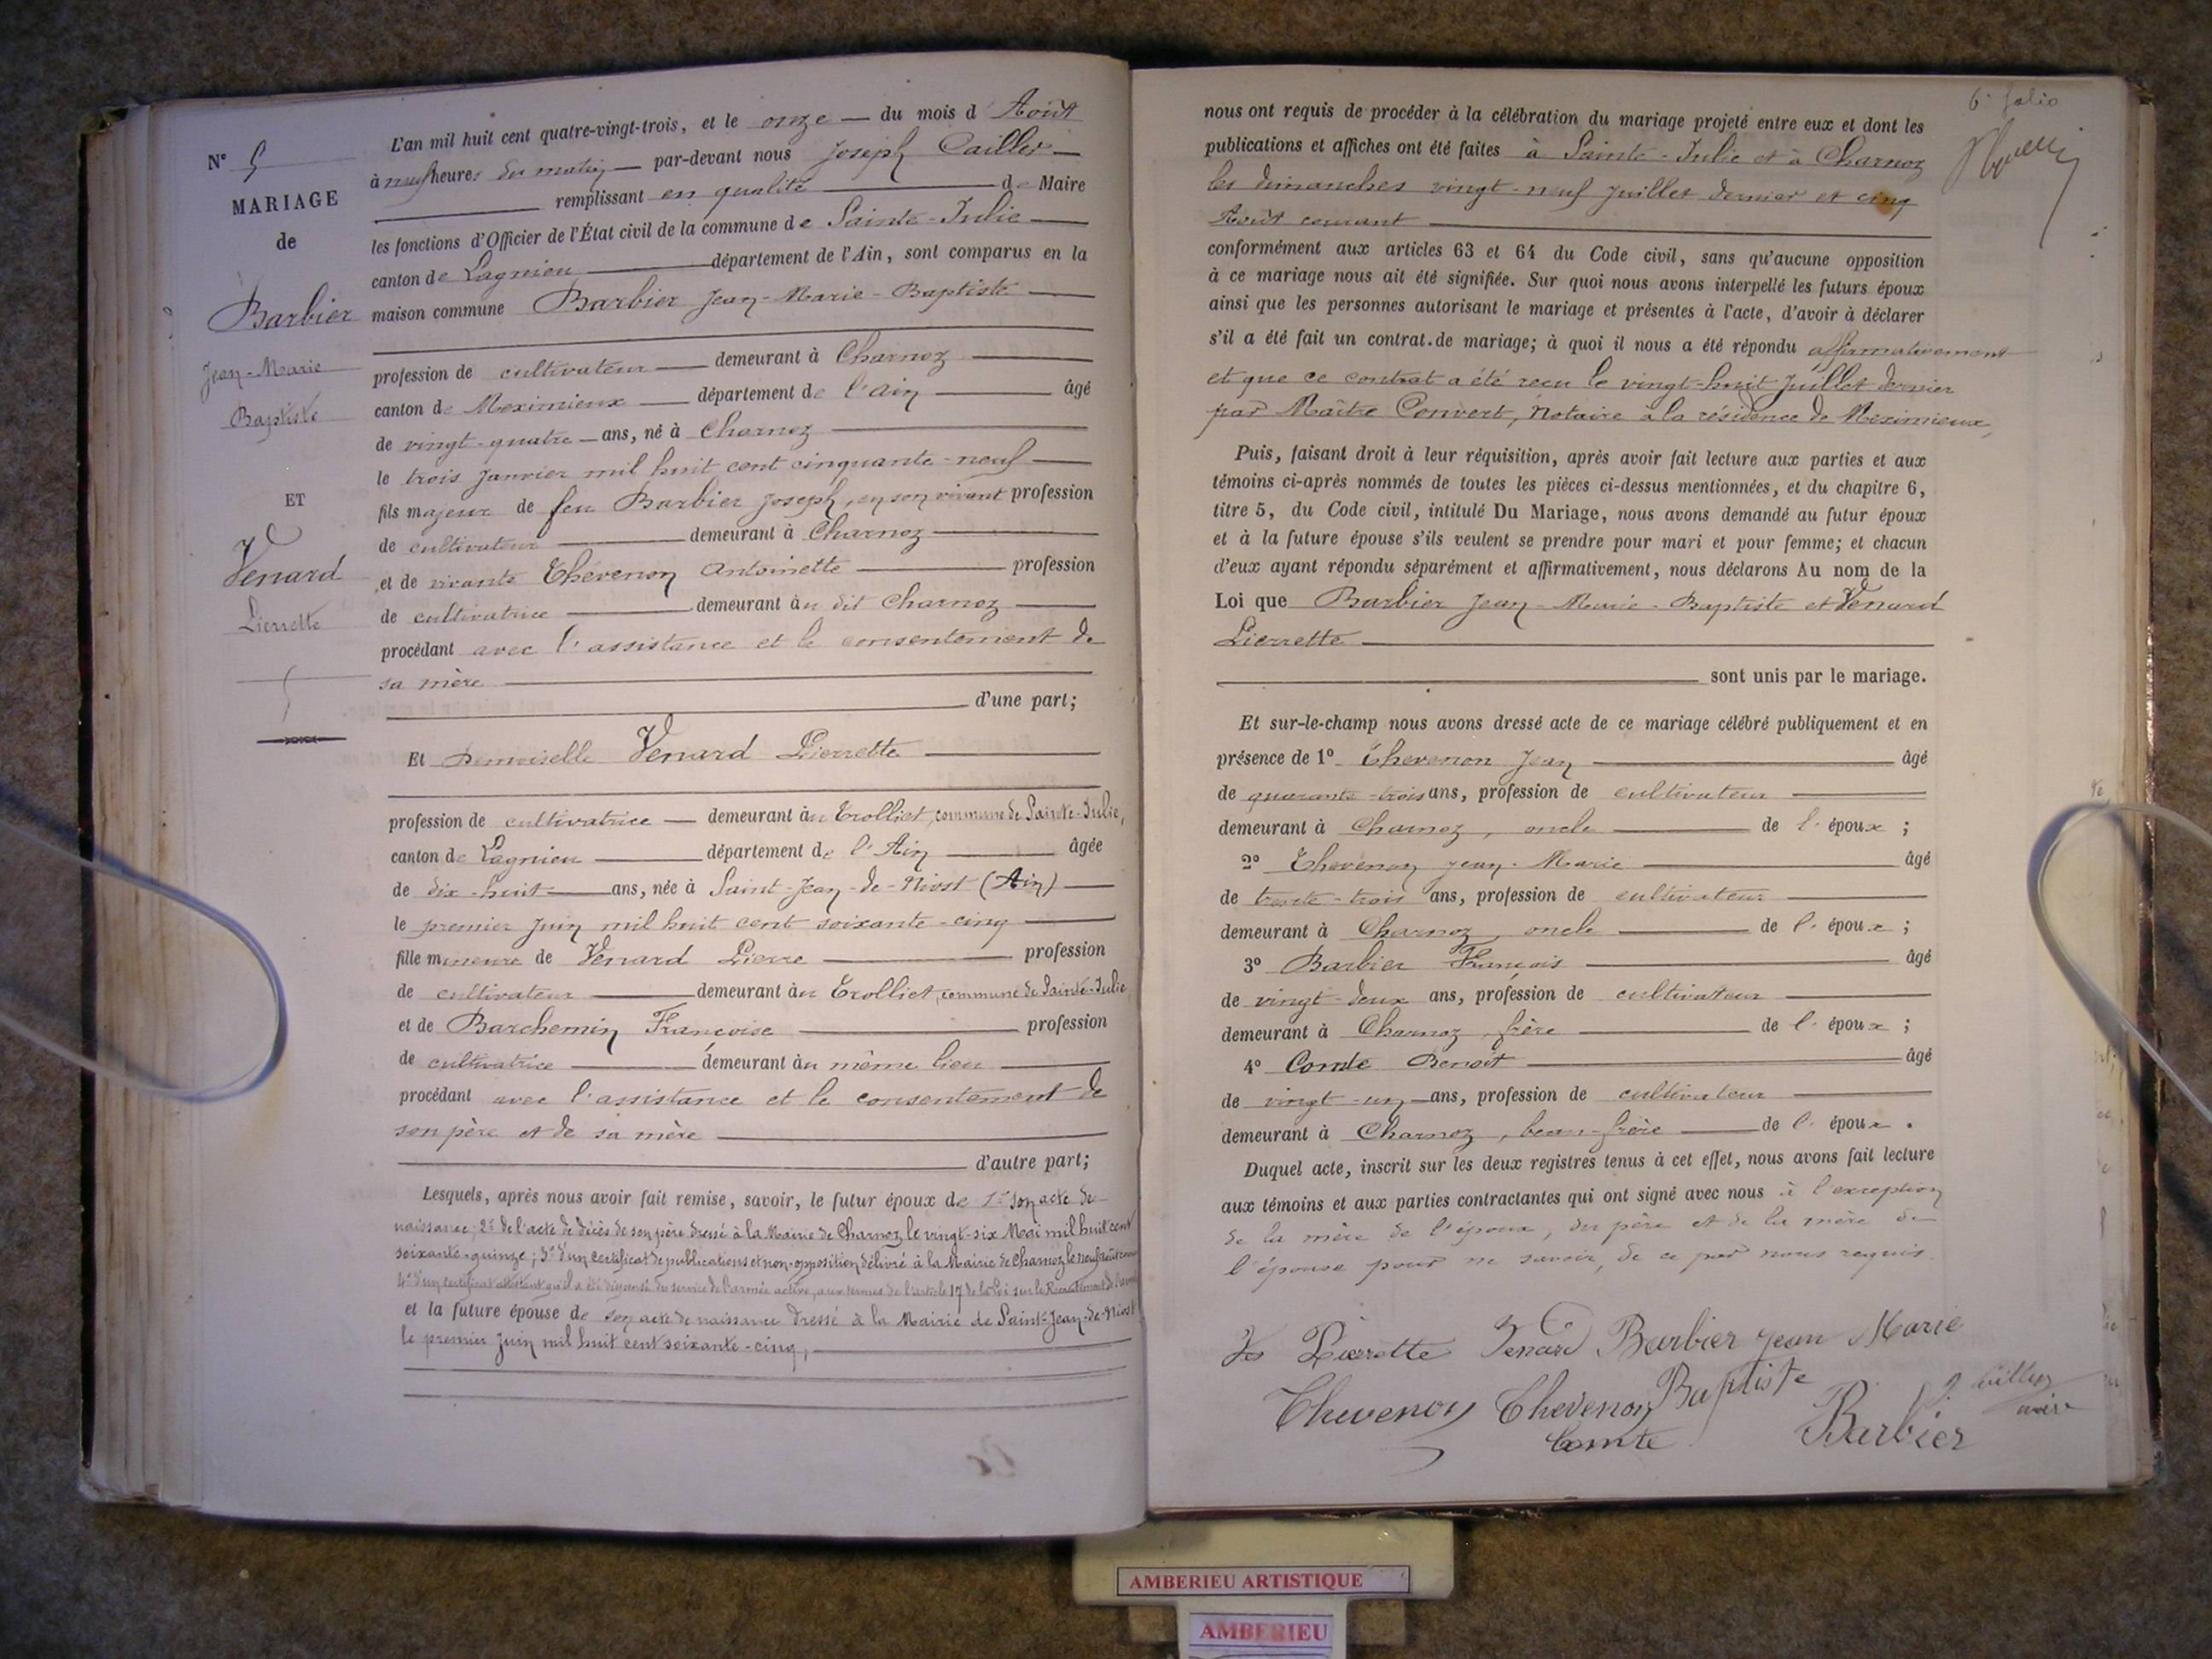 N° 5
MARIAGE
de
Barbier
Jean-Marie
Baptiste
ET
Venard
Pierrette
L'an mil huit cent quatre-vingt-trois, et le onze du mois d'Août
à neuf heures du matin par-devant nous Joseph Cailler
remplissant en qualité de Maire
les fonctions d'Officier de l'État civil de la commune de Sainte-Julie
canton de Lagnieu département de l'Ain, sont comparus en la
maison commune Barbier Jean-Marie-Baptiste
profession de cultivateur demeurant à Charnoz
canton de Meximieux département de l'Ain âgé
de vingt-quatre ans, né à Charnoz
le trois Janvier mil huit cent cinquante-neuf
fils majeur de feu Barbier Joseph, en son vivant profession
de cultivateur demeurant à Charnoz
et de vivante Thévenon Antoinette profession
de cultivatrice demeurant au dit Charnoz
procédant avec l'assistance et le consentement de
sa mère
d'une part;
Et Demoiselle Venard Pierrette
profession de cultivatrice demeurant au Trolliet, commune de Sainte-Julie,
canton de Lagnieu département de l'Ain âgée
de dix-huit ans, née à Saint-Jean-de-Niost (Ain)
le premier Juin mil huit cent soixante-cinq
fille mineure de Venard Pierre profession
de cultivateur demeurant au Trolliet, commune de Sainte-Julie
et de Barchemin Françoise profession
de cultivatrice demeurant au même lieu
procédant avec l'assistance et le consentement de
son père et de sa mère
d'autre part;
Lesquels, après nous avoir fait remise, savoir, le futur époux de 1° son acte de
naissance; 2° de l'acte de décès de son père dressé à la Mairie de Charnoz le vingt-six Mai mil huit cent
soixante-quinze; 3° d'un certificat de publications et non-opposition délivré à la Mairie de Charnoz le neuf août courant
4° d'un certificat attestant qu'il a été dispensé du service de l'armée active, aux termes de l'article 17 de la Loi sur le Recrutement de l'armée
et la future épouse de son acte de naissance dressé à la Mairie de Saint-Jean-de-Niost
le premier Juin mil huit cent soixante-cinq,
6° folio
nous ont requis de procéder à la célébration du mariage projeté entre eux et dont les
publications et affiches ont été faites à Sainte-Julie et à Charnoz
les dimanches vingt-neuf Juillet dernier et cinq
Août courant
conformément aux articles 63 et 64 du Code civil, sans qu'aucune opposition
à ce mariage nous ait été signifiée. Sur quoi nous avons interpellé les futurs époux
ainsi que les personnes autorisant le mariage et présentes à l'acte, d'avoir à déclarer
s'il a été fait un contrat de mariage; à quoi il nous a été répondu affirmativement
et que ce contrat a été reçu le vingt-huit Juillet dernier
par Maître Convert, Notaire à la résidence de Meximieux,
Puis, faisant droit à leur réquisition, après avoir fait lecture aux parties et aux
témoins ci-après nommés de toutes les pièces ci-dessus mentionnées, et du chapitre 6,
titre 5, du Code civil, intitulé Du Mariage, nous avons demandé au futur époux
et à la future épouse s'ils veulent se prendre pour mari et pour femme; et chacun
d'eux ayant répondu séparément et affirmativement, nous déclarons Au nom de la
Loi que Barbier Jean-Marie-Baptiste et Venard
Pierrette
sont unis par le mariage.
Et sur-le-champ nous avons dressé acte de ce mariage célébré publiquement et en
présence de 1° Thevenon Jean âgé
de quarante-trois ans, profession de cultivateur
demeurant à Charnoz, oncle de l'époux;
2° Thevenon Jean-Marie âgé
de trente-trois ans, profession de cultivateur
demeurant à Charnoz, oncle de l'époux;
3° Barbier François âgé
de vingt-deux ans, profession de cultivateur
demeurant à Charnoz, frère de l'époux;
4° Comte Benoit âgé
de vingt-un ans, profession de cultivateur
demeurant à Charnoz, beau-frère de l'époux.
Duquel acte, inscrit sur les deux registres tenus à cet effet, nous avons fait lecture
aux témoins et aux parties contractantes qui ont signé avec nous à l'exception
de la mère de l'époux, du père et de la mère de
l'épouse pour ne savoir, de ce par nous requis.
Pierrette Venard Barbier Jean Marie
Baptiste
Thevenon Thevenon
Comte
Barbier
maire
AMBERIEU ARTISTIQUE
AMBERIEU